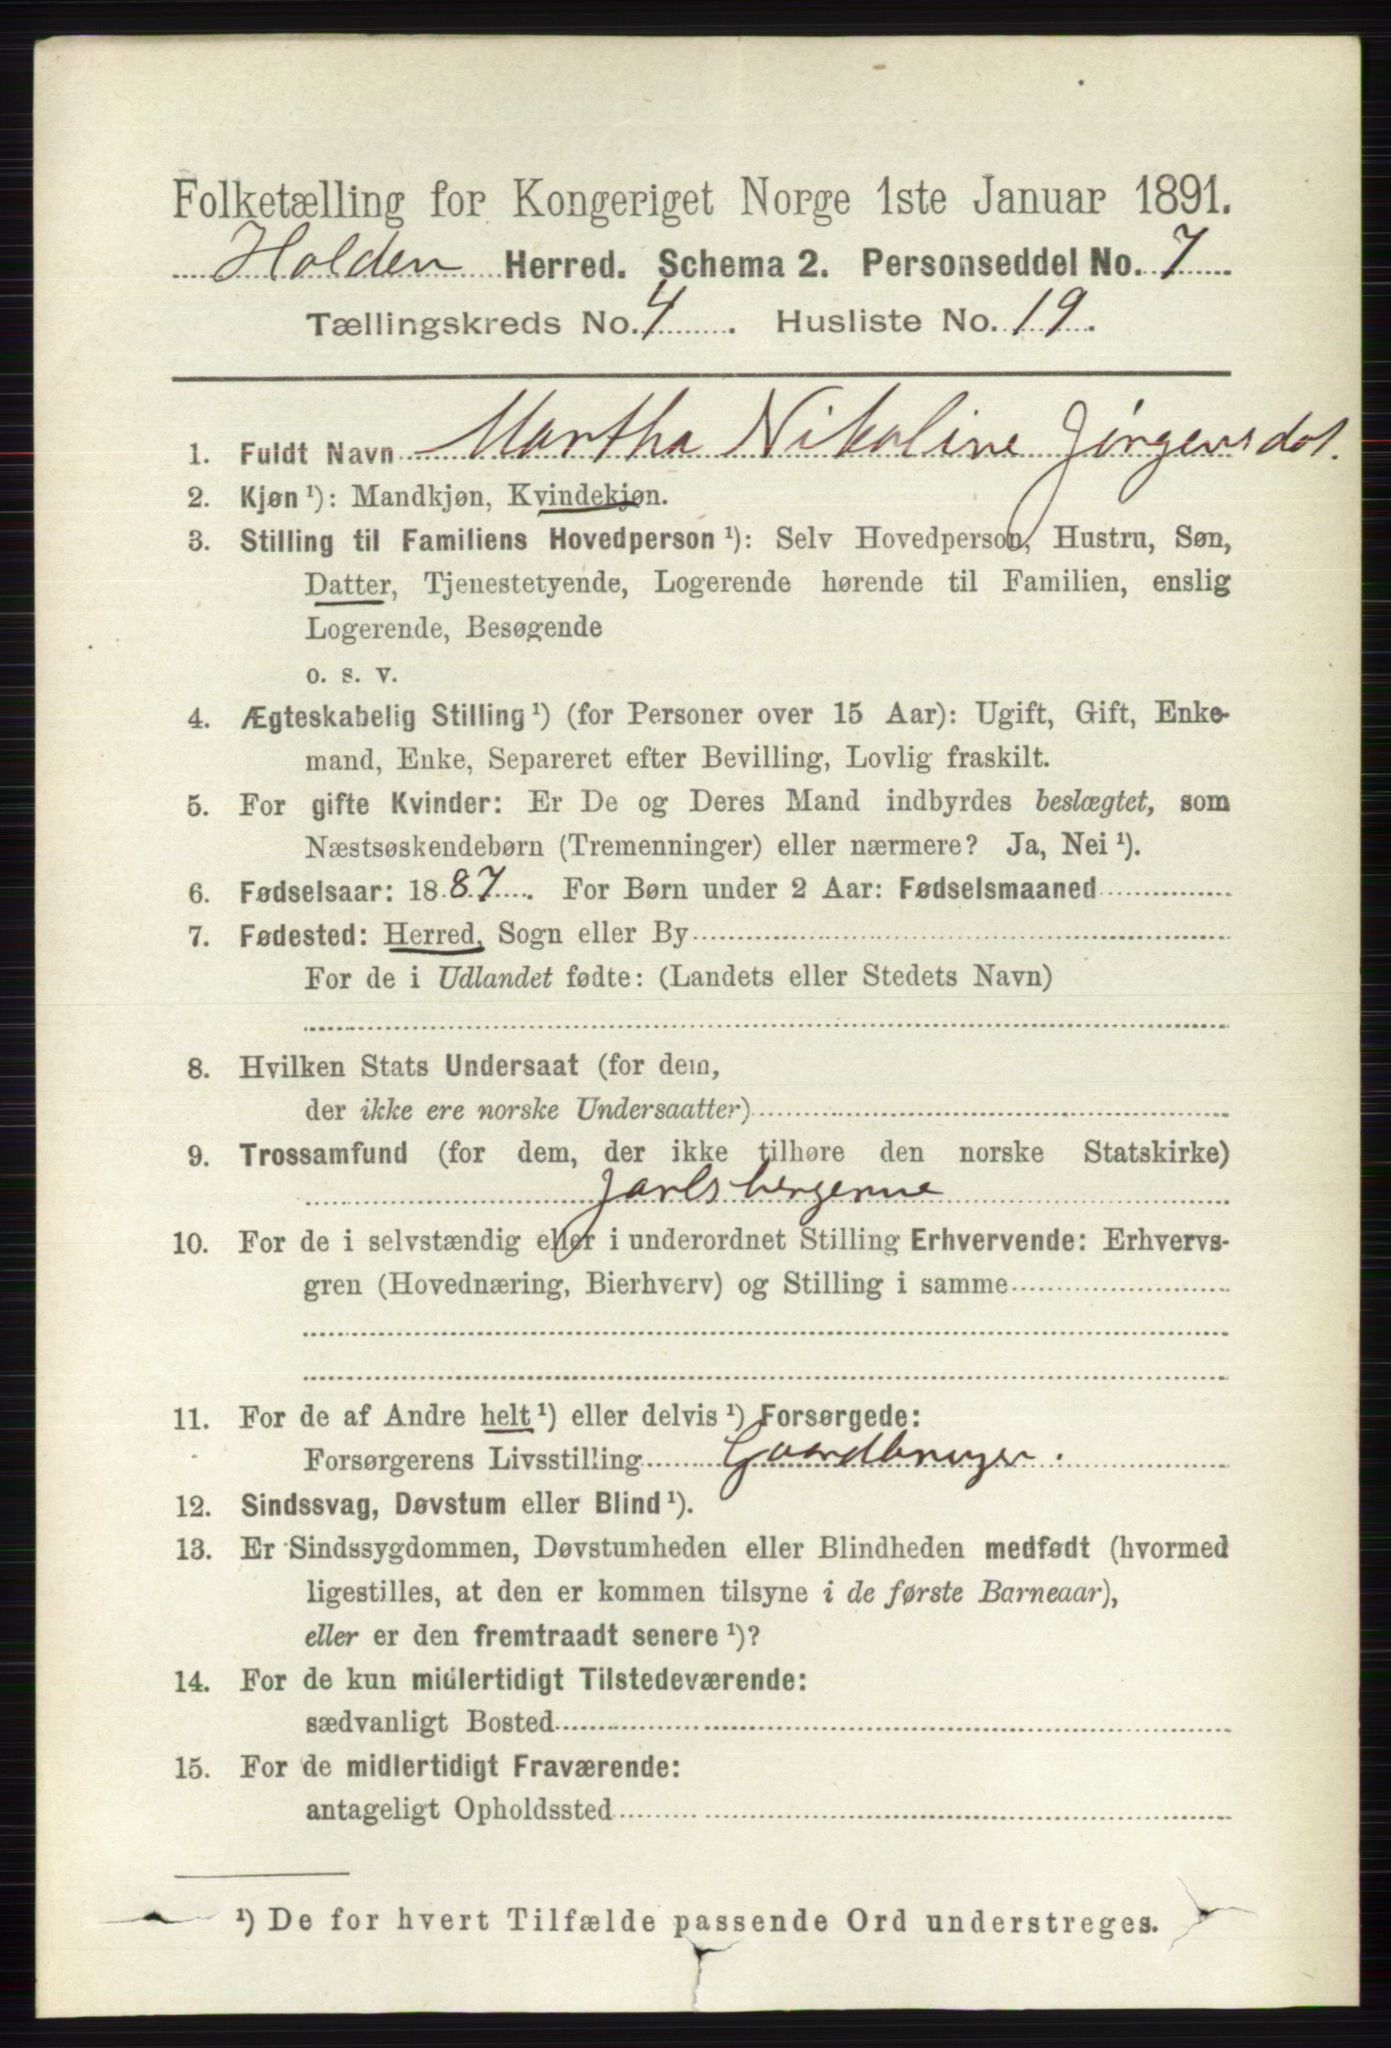 Folketælling for Kongeriget Norge 1ste Januar 1891.
Holden Herred. Schema 2. Personseddel No. 7
Tællingskreds No. 4. Husliste No. 19.
1. Fuldt Navn Martha Nikoline Jørgensdat.
2. Kjøn ¹): Mandkjøn, Kvindekjøn.
3. Stilling til Familiens Hovedperson ¹): Selv Hovedperson, Hustru, Søn,
Datter, Tjenestetyende, Logerende hørende til Familien, enslig
Logerende, Besøgende
o. s. v.
4. Ægteskabelig Stilling ¹) (for Personer over 15 Aar): Ugift, Gift, Enke-
mand, Enke, Separeret efter Bevilling, Lovlig fraskilt.
5. For gifte Kvinder: Er De og Deres Mand indbyrdes beslægtet, som
Næstsøskendebørn (Tremenninger) eller nærmere? Ja, Nei ¹).
6. Fødselsaar: 1887. For Børn under 2 Aar: Fødselsmaaned
7. Fødested: Herred, Sogn eller By
For de i Udlandet fødte: (Landets eller Stedets Navn)
8. Hvilken Stats Undersaat (for dem,
der ikke ere norske Undersaatter)
9. Trossamfund (for dem, der ikke tilhøre den norske Statskirke)
Jarlsbergerne
10. For de i selvstændig eller i underordnet Stilling Erhvervende: Erhvervs-
gren (Hovednæring, Bierhverv) og Stilling i samme
11. For de af Andre helt ¹) eller delvis ¹) Forsørgede:
Forsørgerens Livsstilling Gaardbruger.
12. Sindssvag, Døvstum eller Blind ¹).
13. Er Sindssygdommen, Døvstumheden eller Blindheden medfødt (hvormed
ligestilles, at den er kommen tilsyne i de første Barneaar),
eller er den fremtraadt senere ¹)?
14. For de kun midlertidigt Tilstedeværende:
sædvanligt Bosted
15. For de midlertidigt Fraværende:
antageligt Opholdssted
¹) De for hvert Tilfælde passende Ord understreges.